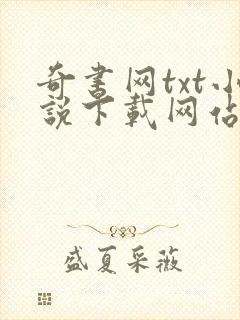 奇书网txt小
說下載网站
盛夏采薇